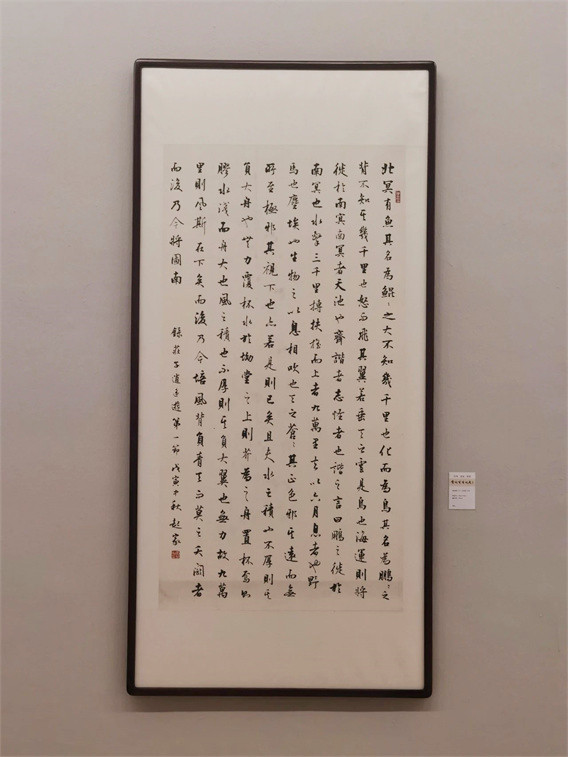 北冥有魚其名為鯤〻之大不知幾千里也化而為鳥其名為鵬〻之
背不知其幾千里也怒而飛其翼若垂天之雲是鳥也海運則將
徙於南冥南冥者天池也齊諧者志怪者也諧之言曰鵬之徙於
南冥也水擊三千里摶扶搖而上者九萬里去以六月息者也野
馬也塵埃也生物之以息相吹也天之蒼〻其正色邪其遠而無
所至極邪其視下也亦若是則已矣且夫水之積也不厚則其
負大舟也無力覆杯水於坳堂之上則芥為之舟置杯焉則
膠水淺而舟大也風之積也不厚則其負大翼也無力故九萬
里則風斯在下矣而後乃今培風背負青天而莫之夭閼者
而後乃今將圖南 錄莊子逍遙遊第一節 戊寅中秋